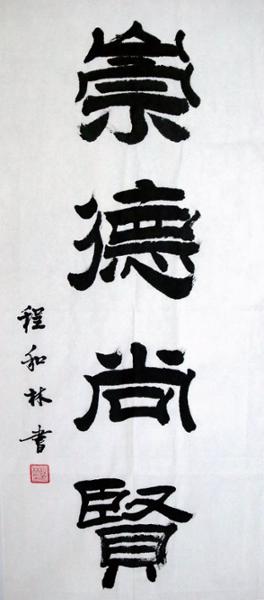 崇德尚賢
程和林書